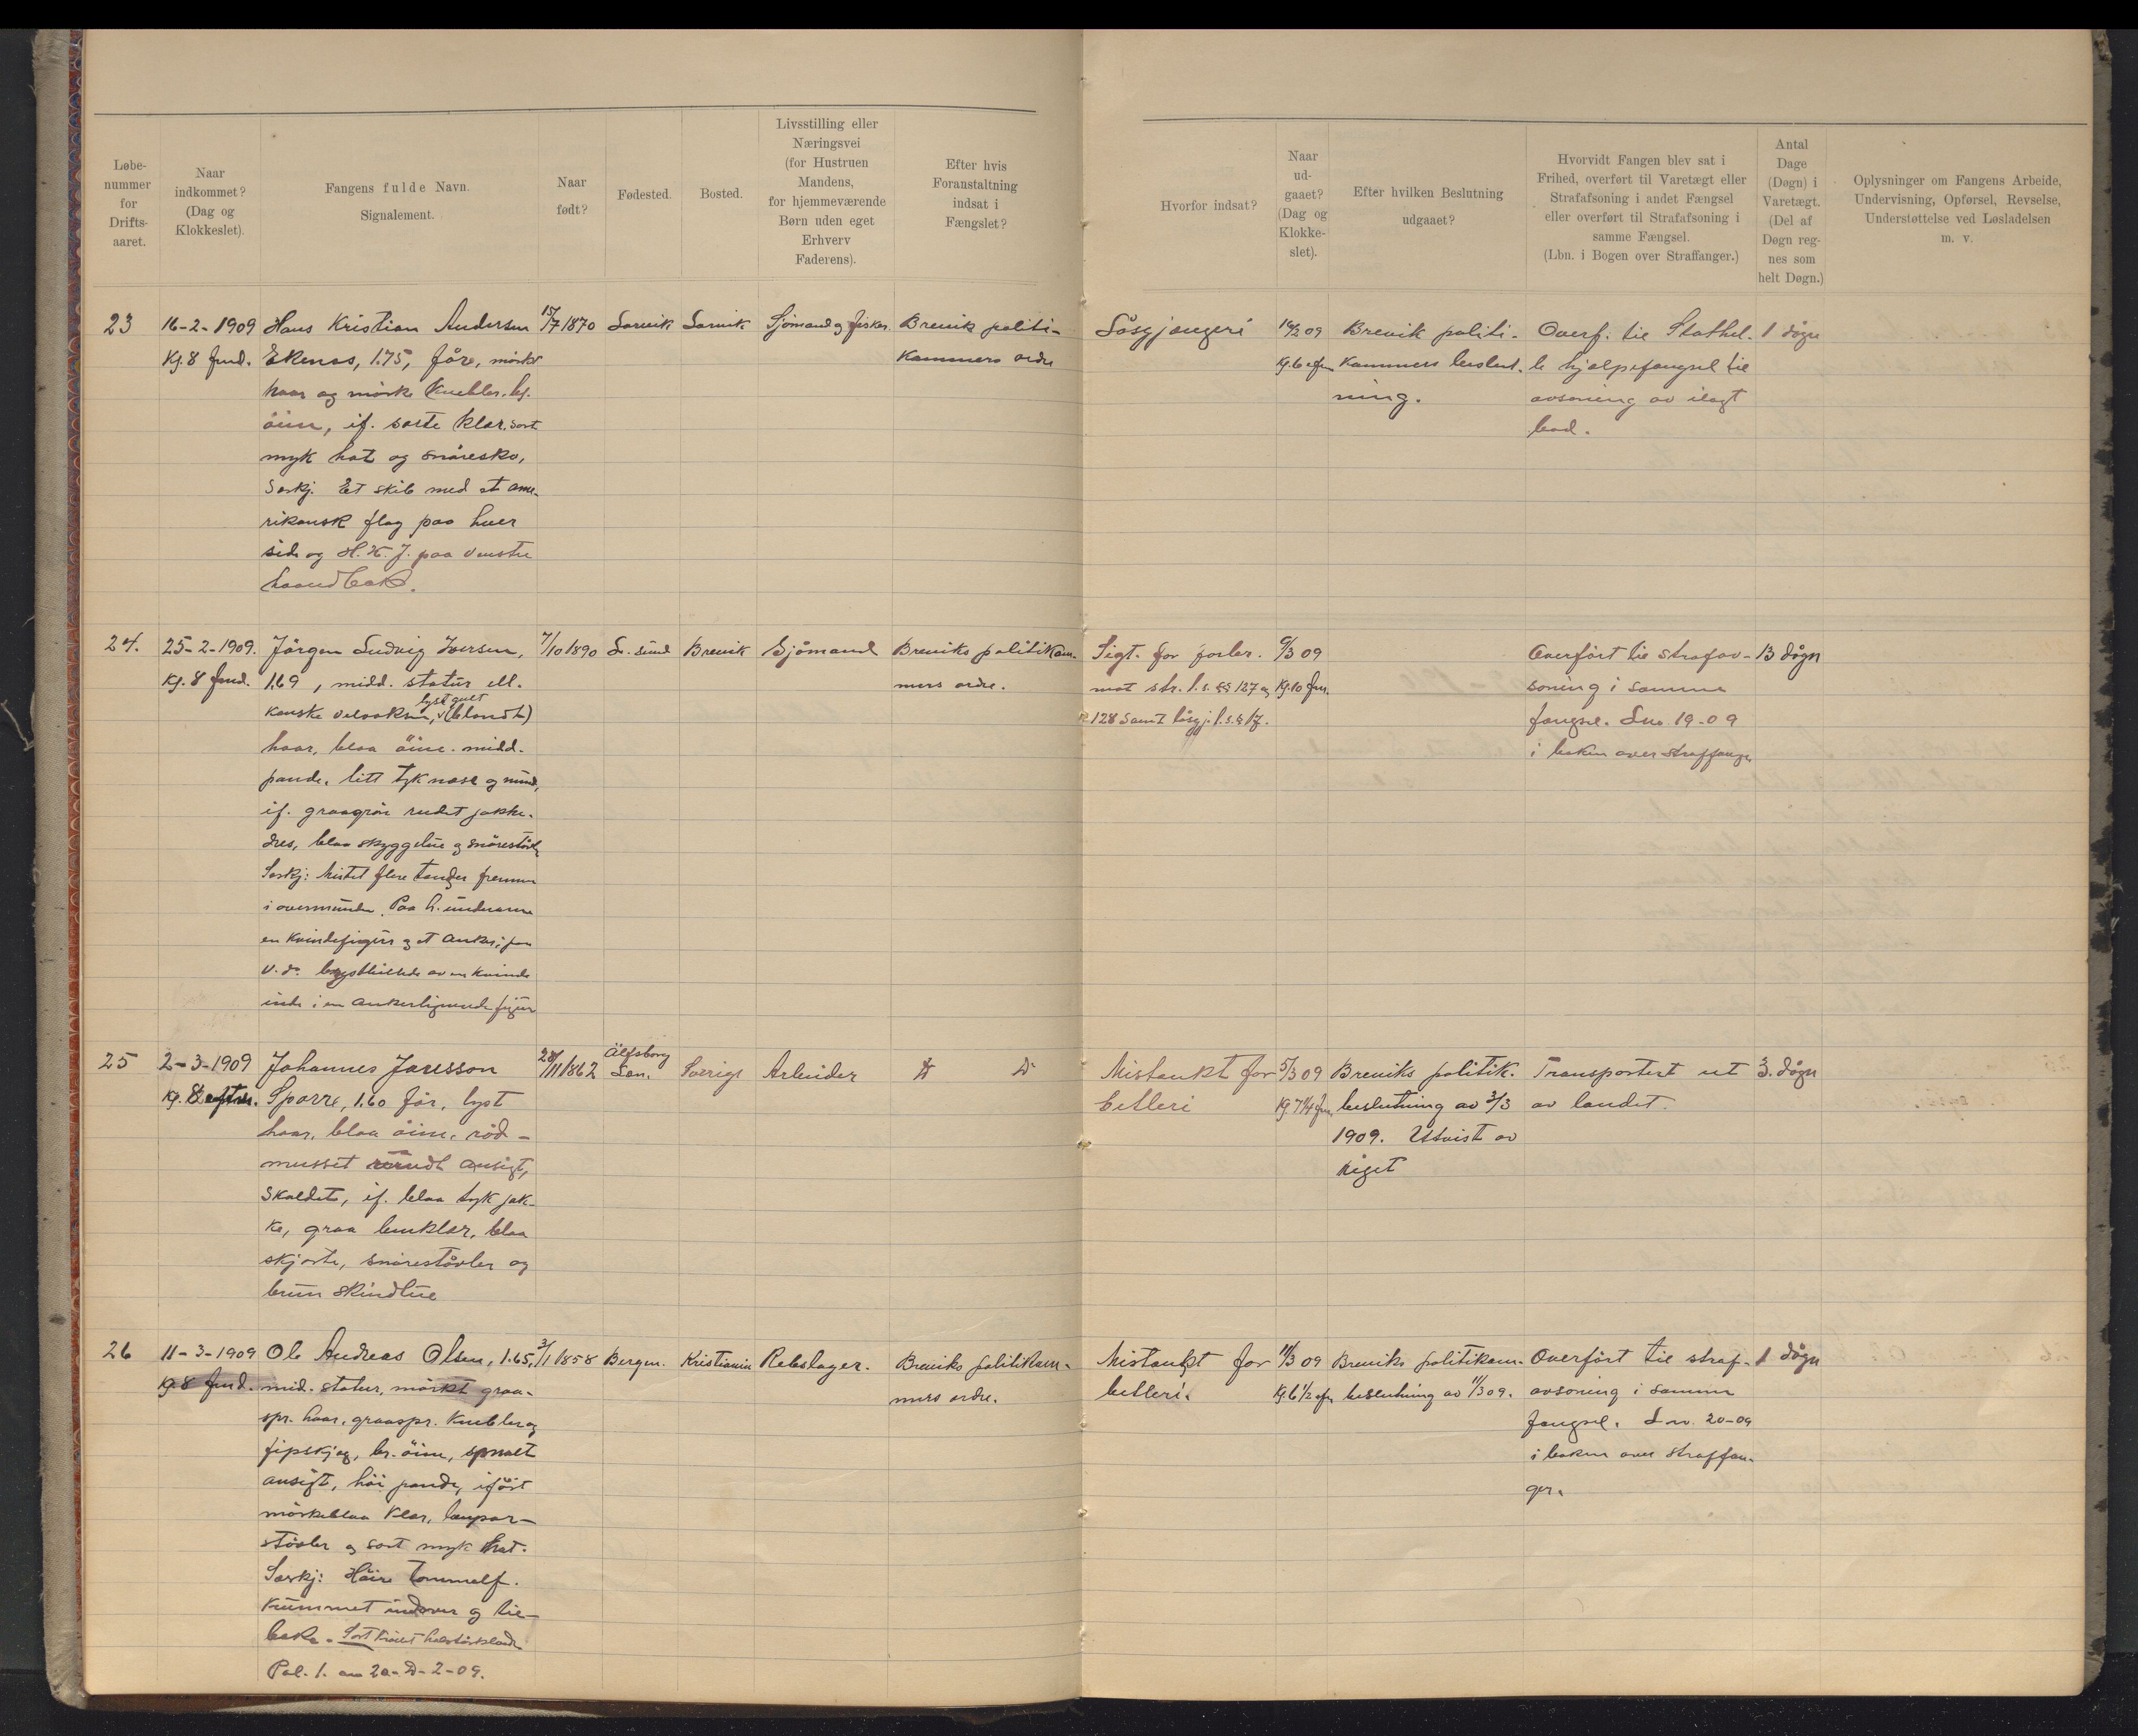 Løbe-
nummer
for
Drifts-
aaret.
Naar
indkommet?
(Dag og
Klokkeslet).
Fangens fulde Navn.
Signalement.
Naar
født?
Fødested.
Bosted.
Livsstilling eller
Næringsvei
(for Hustruen
Mandens,
for hjemmeværende
Børn uden eget
Erhverv
Faderens).
Efter hvis
Foranstaltning
indsat i
Fængslet?
Hvorfor indsat?
Naar
ud-
gaaet?
(Dag og
Klokke-
slet).
Efter hvilken Beslutning
udgaaet?
Hvorvidt Fangen blev sat i
Frihed, overført til Varetægt eller
Strafafsoning i andet Fængsel
eller overført til Strafafsoning i
samme Fængsel.
(Lbn. i Bogen over Straffanger.)
Antal
Dage
(Døgn) i
Varetægt.
(Del af
Døgn reg-
nes som
helt Døgn.)
Oplysninger om Fangens Arbeide,
Undervisning, Opførsel, Revselse,
Understøttelse ved Løsladelsen
m. v.
23
16-2-1909
Kl. 8 fmd.
Hans Kristian Andersen
Ekenæs, 1.75, före, mörkt
haar og mörke knebler, bl.
öine, if. sorte klær, sort
myk hat og snöresko,
Særkj. Et skib med et ame-
rikansk flag paa hver
side og H. K. J. paa venstre
haandbak.
15/7 1870
Larvik
Larvik
Sjömand og fisker
Brevik politi-
kammers ordre
Lösgjængeri
16/2 09
Kl. 6 efm
Brevik politi-
kammers beslut-
ning.
Overf. til Stathel-
le hjælpefængsel til
avsoning av ilagt
bod.
1 dögn
24.
25-2-1909.
Kl. 8 fmd.
Jörgen Ludvig Iversen,
1.69, midd. statur ell.
kanske velvoksen, lyst gult (blondt)
haar, blaa öine. midd.
pande, litt tyk næse og mund,
if. graagrön rudet jakke-
dres, blaa skyggelue og snörestövl.
Særkj: Mistet flere tænder fremme
i overmunden. Paa h. underarm
en kvindefigur og et anker; paa
v. do brystbillede av en kvinde
inde i en ankerlignende figur
7/10 1890
L. sund
Brevik
Sjömand
Breviks politikam-
mers ordre.
Sigt. for forbr.
mot str. l.s. §§ 127 og
128 samt lösgj. l.s. § 17.
9/3 09
Kl. 10 fm.
Overfört til strafav-
soning i samme
fængsel. Lno. 19-09
i boken over straffanger
13 dögn
25
2-3-1909
Kl. 8 eftm.
Johannes Jonsson
Sporre, 1.60 för, lyst
haar, blaa öine, röd-
musset rundt ansigt,
skaldet, if. blaa tyk jak-
ke, graa benklær, blaa
skjorte, snörestövler og
brun skindlue
28/11 1862
Älfsborg
Län.
Sverige
Arbeider
Do
Do
Mistænkt for
betleri
5/3 09
Kl. 7 1/4 fm
Breviks politik.
beslutning av 3/3
1909. Utvist av
riget
Transportert ut
av landet.
3 dögn
26
11-3-1909
Kl. 8 fmd.
Ole Andreas Olsen, 1.65,
mid. statur, mörkt graa-
spr. haar, graaspr. knebler og
fipskjeg, br. öine, smalt
ansigt, höi pande, ifört
mörkeblaa klær, lampar-
stövler og sort myk hat.
Særkj: Höire tommelf.
krummet indover og til-
bake. Sort halstörklæde
Pol. 1. an 20-D-2-09.
3/1 1858
Bergen.
Kristiania
Rebslager.
Breviks politikam-
mers ordre.
Mistænkt for
betleri.
11/3 09
Kl. 6 1/2 efm
Breviks politikam.
beslutning av 11/3 09.
Overfört til straf-
avsoning i samme
fængsel. Lno. 20-09
i boken over straffan-
ger.
1 dögn